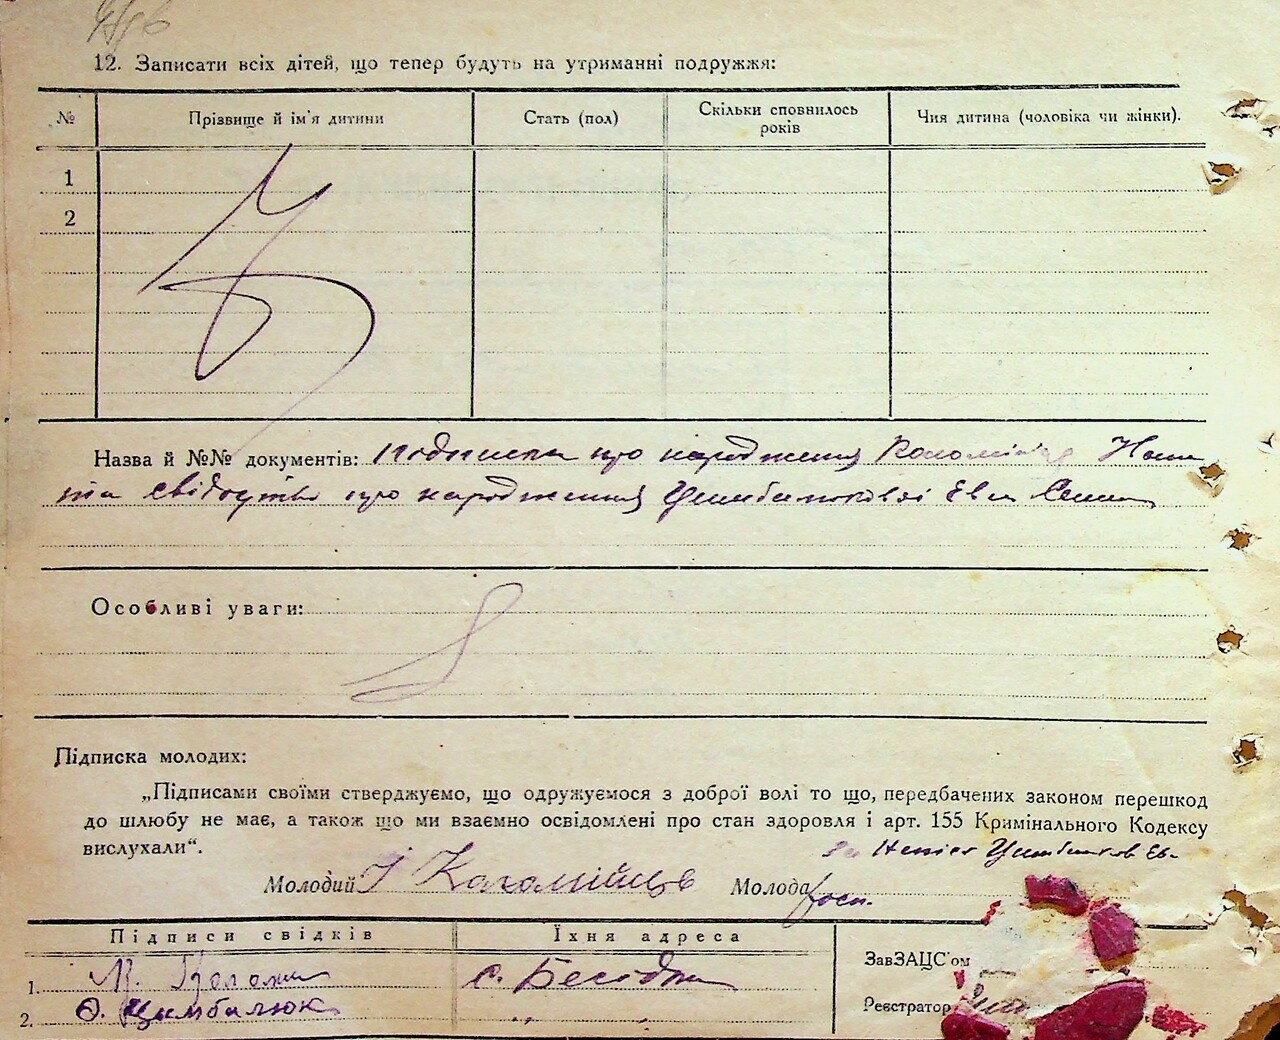 12. Записати всіх дітей, що тепер будуть на утриманні подружжя:
№ Прізвище й ім'я дитини Стать (пол) Скільки сповнилось років Чия дитина (чоловіка чи жінки).
1
2
Назва й №№ документів: про народження
та свідоцтво про народження
Особливі уваги:
Підписка молодих:
„Підписами своїми стверджуємо, що одружуємося з доброї волі то що, передбачених законом перешкод
до шлюбу не має, а також що ми взаємно освідомлені про стан здоровля і арт. 155 Кримінального Кодексу
вислухали“.
Молодий І Коломійцев Молода
Підписи свідків Їхня адреса
ЗавЗАЦС'ом
1. с.
Реєстратор
2. Ф. Цимбалюк „ „